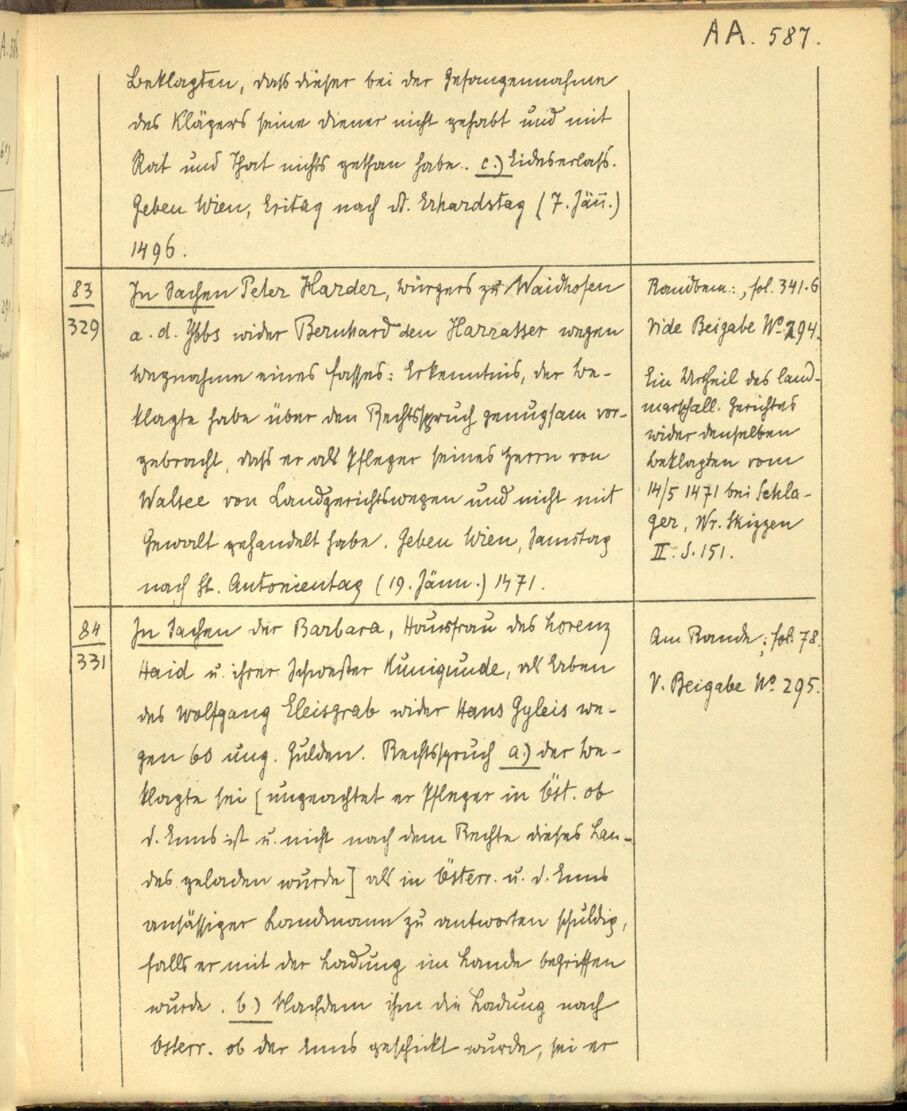 AA. 587.
Beklagten, daß dieser bei der Gefangennahme
des Klägers seine diener nicht gehabt und mit
Rat und That nichts gethan habe. c.) Eideserlaß.
Geben Wien, Eritag nach St. Erhardstag (7. Jän̄.)
1496.
83
329
In Sachen Peter Harder, bürgers zu Waidhofen
a. d. Ybbs wider Bernhard den Harrasser wegen
Wegnahme eines Fasses: Erkenntnis, der Be-
klagte habe über den Rechtsspruch genugsam vor-
gebracht, daß er als Pfleger seines Herrn von
Walsee von Landgerichtswegen und nicht mit
Gewalt gehandelt habe. Geben Wien, Samstag
nach St. Antonientag (19. Jänn.) 1471.
Randbem:, fol. 341.b
Vide Beigabe No 294.
Ein Urtheil des land-
marschall. Gerichtes
wider denselben
Beklagten vom
14/5 1471 bei Schla-
ger, Wr. Skizzen
II. S. 151.
84
331
In Sachen der Barbara, Hausfrau des Lorenz
Haid u. ihrer Schwester Kunigunde, als Erben
des Wolfgang Eleisgrab wider Hans Gyleis we-
gen 60 ung. Gulden. Rechtsspruch a.) der Be-
klagte sei [ungeachtet er Pfleger in Öst. ob
d. Enns ist u. nicht nach dem Rechte dieses Lan-
des geladen wurde] als in Österr. u. d. Enns
ansässiger Landmann zu antworten schuldig,
falls er mit der Ladung im Lande begriffen
wurde. b.) Nachdem ihm die Ladung nach
Österr. ob der Enns geschickt wurde, sei er
Am Rande: fol. 78.
V. Beigabe No 295.